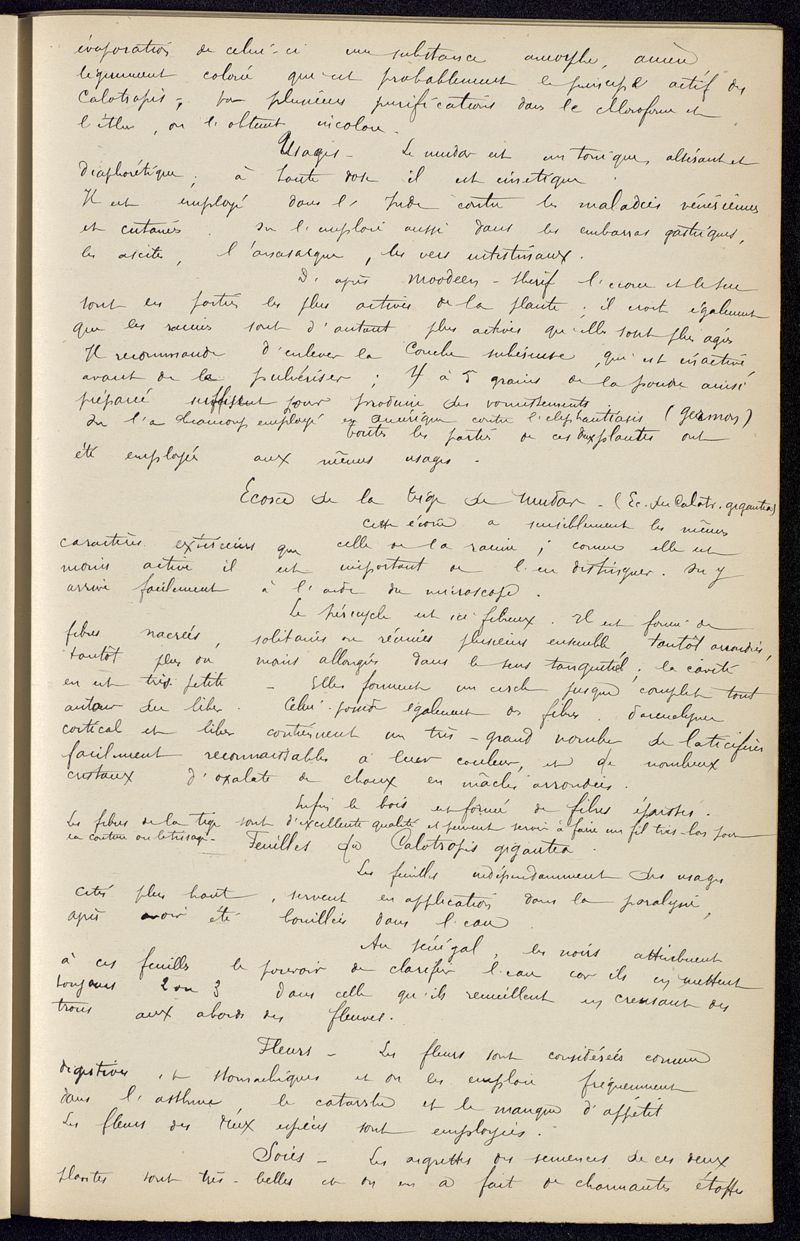 évaporation de celui-ci une substance amorphe, amère
légèrement colorée qui est probablement le principe actif des
Calotropis; par plusieurs purifications dans le chloroforme et
l'éther, on l'obtient incolore.
Usages - Le mudar est un tonique, altérant et
diaphorétique; à haute dose il est émétique
Il est employé dans l'Inde contre les maladies vénériennes
et cutanées. On l'emploie aussi dans les embarras gastriques,
les ascites, l'anasarque, les vers intestinaux.
D'après Moodeen-Sherif l'écorce et le suc
sont les parties les plus actives de la plante; il croit également
que les racines sont d'autant plus actives qu'elles sont plus agées
Il recommande d'enlever la couche subéreuse, qui est inactive
avant de la pulvériser; 4 à 5 grains de la poudre ainsi
préparée suffisent pour produire des vomissements
On l'a beaucoup employé en Amérique contre l'éléphantiasis (Germon)
toutes les parties de ces deux plantes ont
été employées aux mêmes usages.
Ecorce de la tige de Mudar - (Ec. du Calotr. gigantea)
Cette écorce a sensiblement les mêmes
caractères extérieurs que celle de la racine; comme elle est
moins active il est important de l'en distinguer. On y
arrive facilement à l'aide du microscope.
Le péricycle est ici fibreux. Il est formé de
fibres nacrées, solitaires ou réunies plusieurs ensemble, tantôt arrondies,
tantôt plus ou moins allongées dans le sens tangentiel; la cavité
en est très petite - Elles forment un cercle presque complet tout
autour du liber. Celui-ci possède également des fibres. parenchyme
cortical et liber contiennent un très-grand nombre de laticifères
facilement reconnaissables à leur couleur, et de nombreux
cristaux d'oxalate de chaux en mâcles arrondies.
Enfin le bois est formé de fibres épaisses.
Les fibres de la tige sont d'excellente qualité et peuvent servir à faire un fil très-bon pour
la couture ou le tissage -
Feuilles du Calotropis gigantea.
Les feuilles indépendamment des usages
cités plus haut, servent en application dans la paralysie,
après avoir été bouillies dans l'eau
Au Sénégal, les noirs attribuent
à ces feuilles le pouvoir de clarifier l'eau car ils en mettent
toujours 2 ou 3 dans celle qu'ils recueillent en creusant des
trous aux abords des fleuves.
Fleurs - Les fleurs sont considérées comme
digestives et stomachiques et on les emploie fréquemment
dans l'asthme le catarrhe et le manque d'appétit
Les fleurs des deux espèces sont employées.
Soies - Les aigrettes des semences de ces deux
plantes sont très-belles et on en a fait de charmantes étoffes